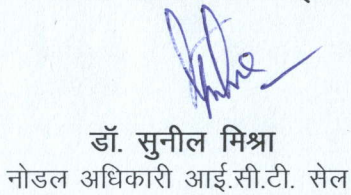 डॉ. सुनील मिश्रा
नोडल अधिकारी आई.सी.टी. सेल